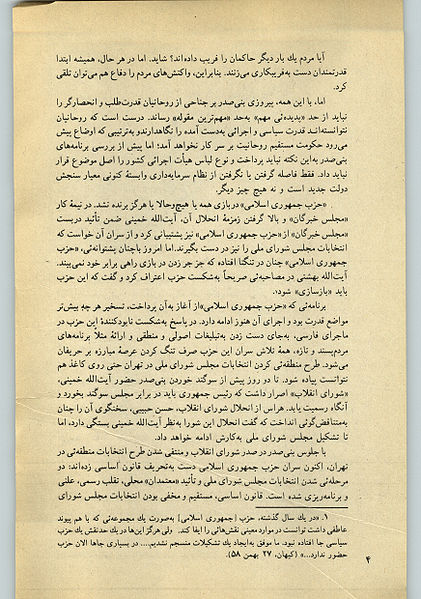 آیا مردم یك بار دیگر حاکمان را فریب داده‌اند؟ شاید. اما در هر حال، همیشه ابتدا
قدرتمندان دست به‌فریبکاری می‌زنند. بنابراین، واکنش‌های مردم را دفاع هم می‌توان تلقی
کرد.
اما، با این همه، پیروزی بنی‌صدر بر جناحی از روحانیان قدرت‌طلب و انحصارگر را
نباید از حد «پدیده‌ئی مهم» به‌حد «مهم‌ترین مقوله» رساند. درست است که روحانیان
نتوانسته‌اند قدرت سیاسی و اجرائی به‌دست آمده را نگاهدارند و به‌ترتیبی که اوضاع پیش
می‌رود حکومت مستقیم روحانیت بر سر کار نخواهد آمد؛ اما پیش از بررسی برنامه‌های
بنی‌صدر به‌این نکته نباید پرداخت و نوع لباس هیأت اجرائی کشور را اصل موضوع قرار
نباید داد. فقط فاصله گرفتن یا نگرفتن از نظام سرمایه‌داری وابستهٔ کنونی معیار سنجش
دولت جدید است و نه هیچ چیز دیگر.
«حزب جمهوری اسلامی» در بازی همه یا هیچ و حالا یا هرگز برنده نشد. در نیمهٔ کار
«مجلس خبرگان» و بالا گرفتن زمزمهٔ انحلال آن، آیت‌الله خمینی ضمن تأئید دربست
«مجلس خبرگان» از «حزب جمهوری اسلامی» نیز پشتیبانی کرد و از سران آن خواست که
انتخابات مجلس شورای ملی را نیز در دست بگیرند. اما امروز با چنان پشتوانه‌ئی، «حزب
جمهوری اسلامی» چنان در تنگنا افتاده که جز جر زدن در بازی راهی برابر خود نمی‌بیند.
آیت‌الله بهشتی در مصاحبه‌ئی صریحاً به‌شکست حزب اعتراف کرد و گفت که این حزب
باید «بازسازی» شود۱.
برنامه‌ئی که «حزب جمهوری اسلامی» از آغاز به‌آن پرداخت، تسخیر هر چه بیش‌تر
مواضع قدرت بود و اجرای آن هنوز ادامه دارد. در پاسخ به‌شکست نابودکنندهٔ این حزب در
ماجرای فارسی، به‌جای دست زدن به‌تبلیغات اصولی و منطقی و ارائهٔ مثلاً برنامه‌های
مردم‌پسند و تازه، همهٔ تلاش سران این حزب صرف تنگ کردن عرصهٔ مبارزه بر حریفان
می‌شود. طرح منطقه‌ئی کردن انتخابات مجلس شورای ملی در تهران حتی روی کاغذ هم
نتوانست پیاده شود. تا دو روز پیش از سوگند خوردن بنی‌صدر حضور آیت‌الله خمینی،
«شورای انقلاب» اصرار داشت که رئیس جمهوری باید در برابر مجلس سوگند بخورد و
آنگاه رسمیت یابد. هراس از انحلال شورای انقلاب، حسن حبیبی، سخنگوی آن را چنان
به‌متناقض‌گوئی انداخت که گفت انحلال این شورا به‌نظر آیت‌الله خمینی بستگی دارد، اما
تا تشکیل مجلس شورای ملی به‌کارش ادامه خواهد داد.
با جلوس بنی‌صدر در صدر شورای انقلاب و منتفی شدن طرح انتخابات منطقه‌ئی در
تهران، اکنون سران حزب جمهوری اسلامی دست به‌تحریف قانون اساسی زده‌اند: دو
مرحله‌ئی شدن انتخابات مجلس شورای ملی و تأئید «معتمدان» محلی، تقلب رسمی، علنی
و برنامه‌ریزی شده است. قانون اساسی، مستقیم و مخفی بودن انتخابات مجلس شورای
۱. «در یك سال گذشته، حزب [جمهوری اسلامی] به‌صورت یك مجموعه‌ئی که با هم پیوند
عاطفی داشت توانست در موارد معینی نقش‌هائی را ایفا کند. ولی هرگز این‌ها در یك حد نقش یك حزب
سیاسی جا افتاده نبود. ما موفق به‌ایجاد یك تشکیلات منسجم نشدیم.... در بسیاری جاها الان حزب
حضور ندارد...» (کیهان، ۲۷ بهمن ۵۸).
۴